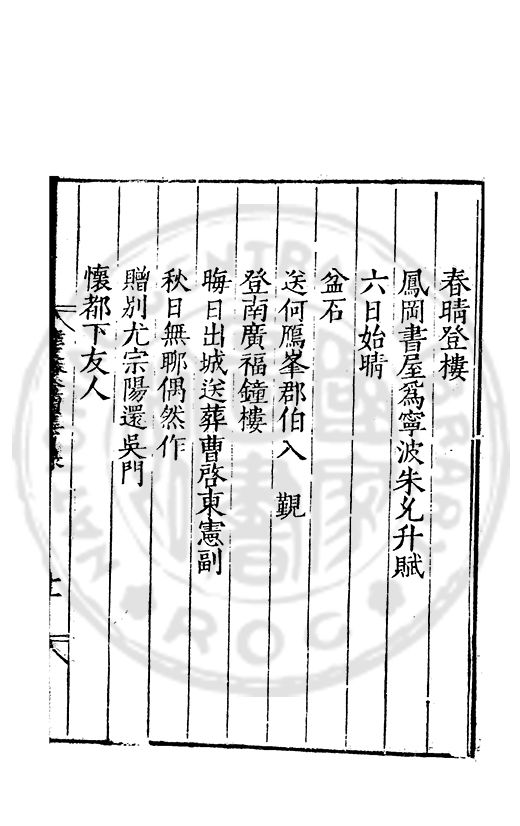 春晴登樓
鳳岡書屋爲寧波朱允升賦
六日始晴
盆石
送何鴈峯郡伯入　覲
登南廣福鐘樓
晦日出城送葬曹啓東憲副
秋日無聊偶然作
贈別尤宗陽還吳門
懷都下友人